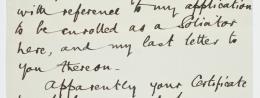 with reference to my application
to be enrolled as a Solicitor
here, and my last letter to
you thereon.
Apparently your Certificate